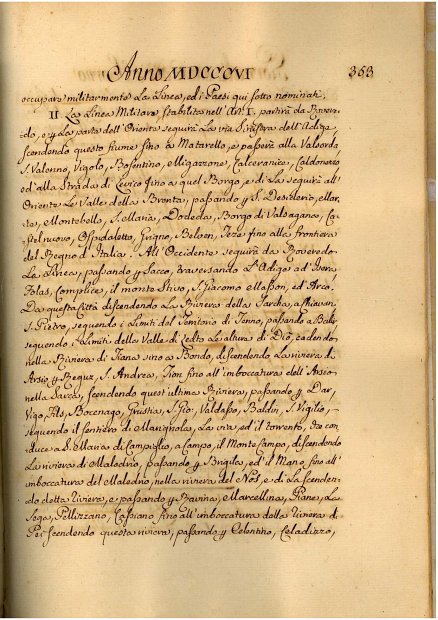 Anno MDCCCVI 353
occupare militarmente La Linea, ed i Paesi qui sotto nominati,
II La Linea Militare stabilita nell'Art. I. partirà da Rovere-
do, e p. La parte dell'Oriente seguirà La via Sinistra dell'Adige,
scendendo questo fiume sino a Matarello, e passerà alla Valsorda
S. Valonno, Vigolo, Bosentino, Migazzone, Calceranica, Caldonazo
ed alla Strada di Levico sino a quel Borgo, e di La seguirà all'
Oriente Le Valle della Brenta, passando p. S. Desiderio, Mar-
ter, Montebello, S. Maria, Dodeda, Borgo di Valsugana, Ca-
stelnuovo, Ospidaletto, Grigno, Belven, Teze sino alla frontiera
del Regno d'Italia. All'Occidente seguirà da Roveredo
La Linea, passando p. Sacco, traversando L'Adige ad Isera
Folas, Complice, il monte Stivo, S. Giacomo ed
Da questa Città discendendo La Riviera della Sarcha, a
S. Pietro, seguendo i Limiti del Territorio di Tenno, passando a
seguendo i Limiti della Valle di Ledro La altura di Dió, cadendo
nella Riviera di Piana sino a Bondo, discendendo La riviera di
Arsio p. S. Andrea, Tion sino all'imboccatura dell'
nella Sarca, scendendo quest'ultima Riviera, passando p. Dar,
Vigo, Bocenago, S. Gio. S. Vigilio,
seguendo il sentiero di La via, ed il torrento, che con
duce a S. Maria di Campiglio, a Campo, il Monte Campo, discendendo
La riviera di Maledrio, passando p. ed il Mano sino all'
imboccatura del Maledrio, nella riviera del Nos, e di La scenden-
do detta riviera, e passando p. Ravina, Marcellina, Piane, La
Sega, Pellizzano, Cassiano sino all'imboccatura della riviera di
scendendo questa riviera, passando p. Celentino, Celadizzo,